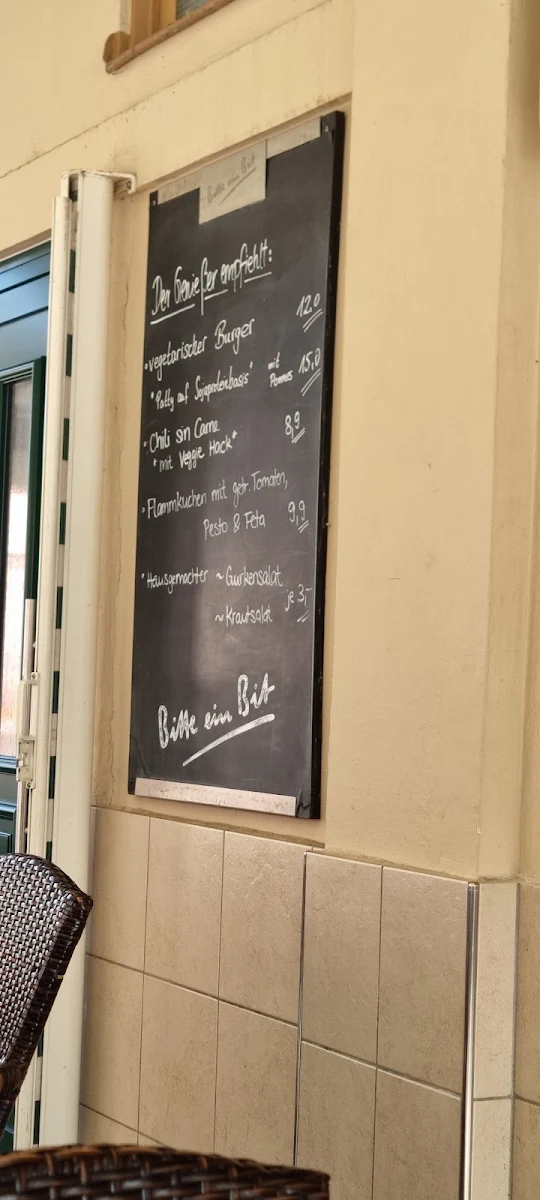 Bitte ein Bit
Der Genießer empfiehlt:
• vegetarischer Burger 12.0
"Patty auf Sojaproteinbasis" mit Pommes 15.0
• Chili sin Carne 8,9
"mit Veggie Hack"
• Flammkuchen mit getr. Tomaten,
Pesto & Feta 9,9
• Hausgemachter ~ Gurkensalat
~ Krautsalat je 3,-
Bitte ein Bit